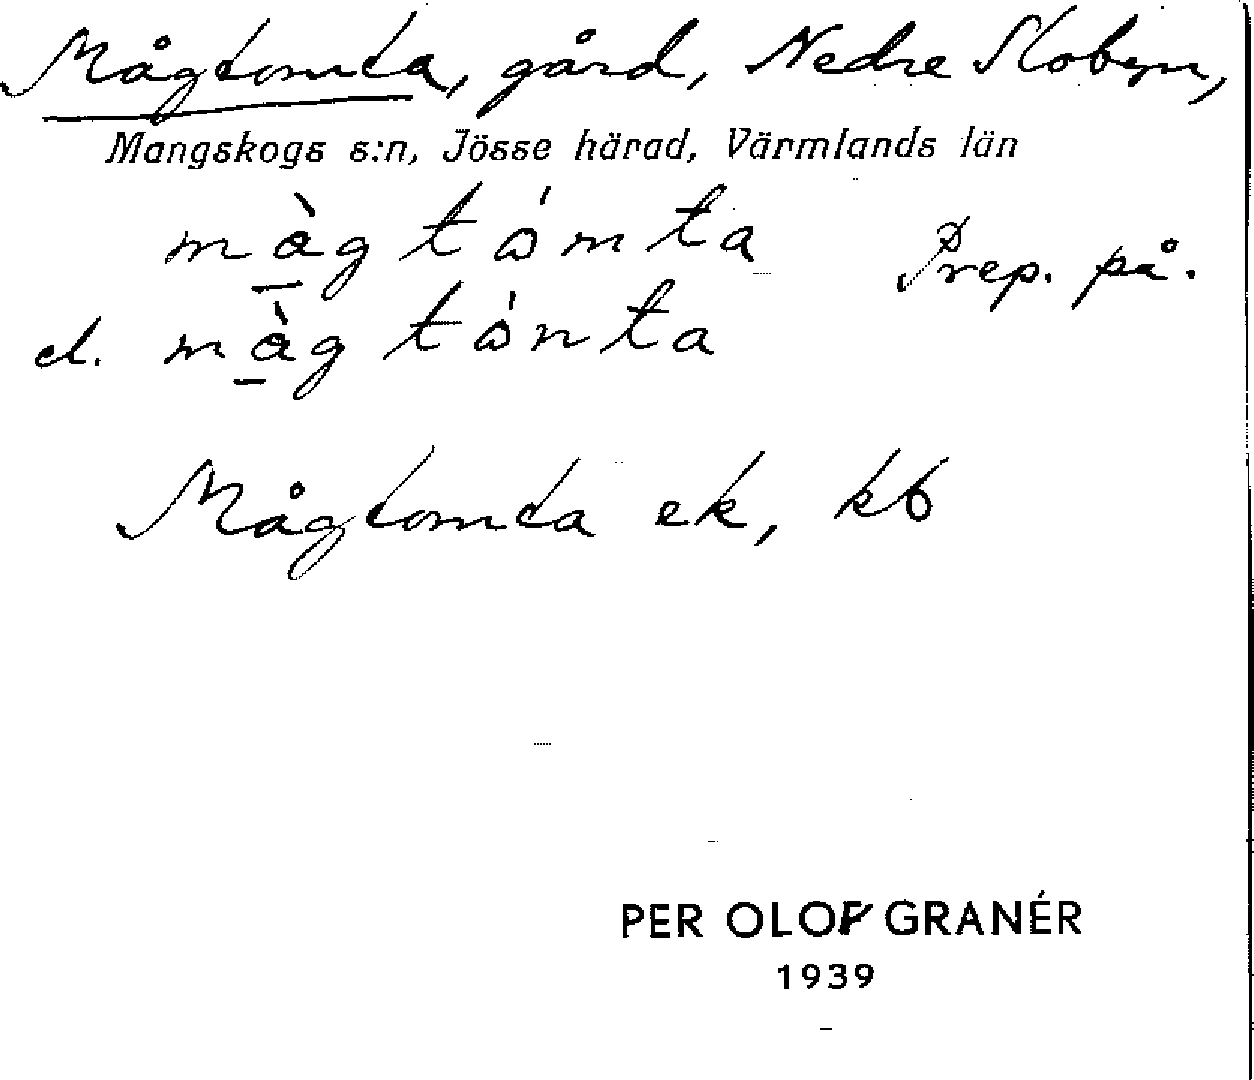 Mågtomta, gård, Nedre Slobyn,
Mangskogs s:n, Jösse härad, Värmlands län
màg tómta Prep. på.
el. màg tónta
Mågtomta ek, kb
PER OLOF GRANÉR
1939